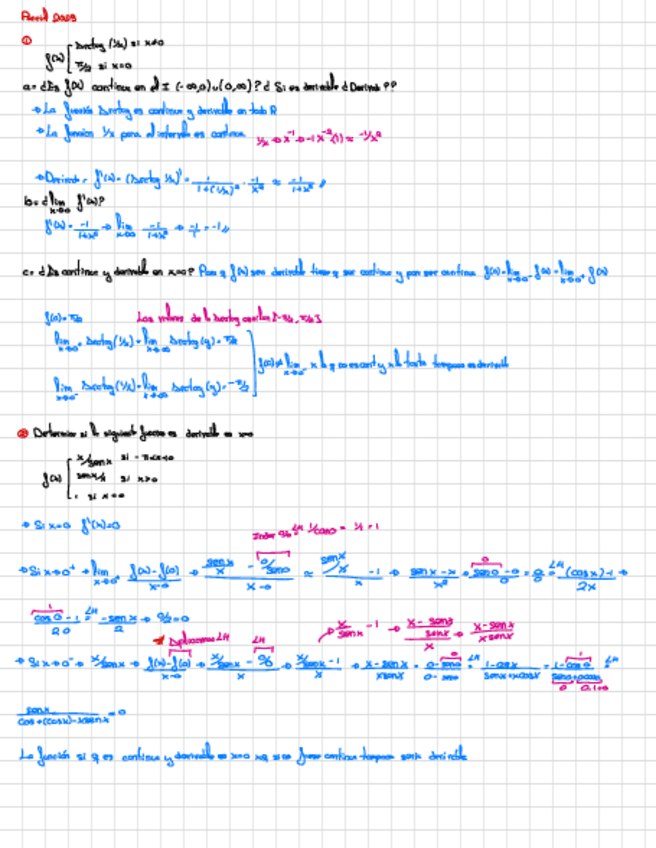 Parcial 2023
①
f(x) { arctag (1/x) si x≠0
π/2 si x=0
a= ¿Es f(x) continua en el I (-∞,0)∪(0,∞)? ¿Si es derivable ¿Deriva??
→ La función arctag es continua y derivable en todo R
→ La función 1/x para el intervalo es continua 1/x → x⁻¹ → -1·x⁻²(1) = -1/x²
→ Derivada = f'(x) = (arctag 1/x)' = 1/(1+(1/x)²) · -1/x² = -1/(1+x²)
b= ¿lim x→0 f'(x)?
f'(x) = -1/(1+x²) → lim x→0 -1/(1+x²) → -1/1 = -1
c= ¿Es continua y derivable en x=0? Para q f(x) sea derivable tiene q ser continua y para ser continua f(x)=lim x→0⁻ f(x)=lim x→0⁺ f(x)
f(0)=π/2 Los valores de la arctag [-π/2, π/2]
lim x→0⁺ arctag(1/x) = lim x→0⁺ arctag(y) = π/2
f(0)≠lim x→0⁻ x lo q no es cont y x lo tanto tampoco es derivable
lim x→0⁻ arctag(1/x) = lim x→0⁻ arctag(y) = -π/2
② Determinar si la siguiente función es derivable en x=0
f(x) { x/senx si -π<x<0
senx/x si x>0
1 si x=0
→ Si x=0 f'(x)=0
→ Si x→0⁺ → lim x→0⁺ (f(x)-f(0))/(x-0) → senx/x -1 → (senx-x)/x² → = 0/0 LH (cosx)-1/2x →
(cos0-1)/2·0 LH -senx/2 → 0/2=0
Aplicamos LH LH x/senx -1 → (x-senx)/senx / x → (x-senx)/xsenx
→ Si x→0⁻ → x/senx → (f(x)-f(0))/(x-0) → (x/senx -1)/x → (x-senx)/xsenx = (1-cosx)/(senx+xcosx) = LH
senx/(cos+(cosx)-xsenx) = 0
La función si q es continua y derivable en x=0 xq si no fuese continua tampoco sería derivable